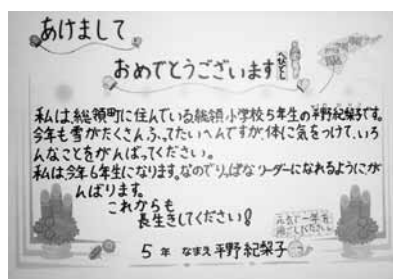 あけまして
おめでとうございます
私は、総領町に住んでいる総領小学校5年生の平野紀梨子です。
今年も雪がたくさんふってたいへんですが、体に気をつけて、いろ
んなことをがんばってください。
私は今年6年生になります。なのでりっぱなリーダーになれるようにが
んばります。
これからも
長生きしてください!
元気で一年を
過ごしてください。
5年 なまえ 平野紀梨子